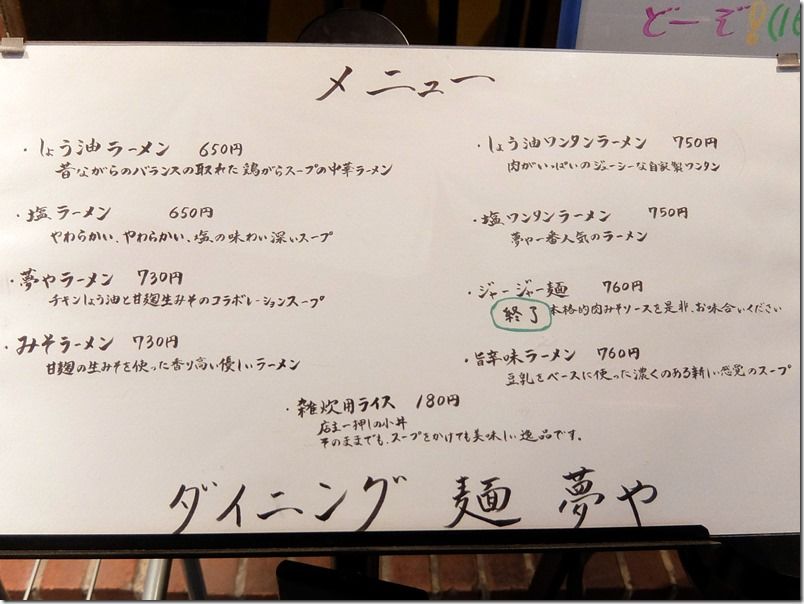 どーぞ!(16
メニュー
・しょう油ラーメン 650円
昔ながらのバランスの取れた鶏がらスープの中華ラーメン
・塩ラーメン 650円
やわらかい、やわらかい、塩の味わい深いスープ
・夢やラーメン 730円
チキンしょう油と甘麹生みそのコラボレーションスープ
・みそラーメン 730円
甘麹の生みそを使った香り高い優しいラーメン
・しょう油ワンタンラーメン 750円
肉がいっぱいのジューシーな自家製ワンタン
・塩ワンタンラーメン 750円
夢や一番人気のラーメン
・ジャージャー麺 760円
終了 本格的肉みそソースを是非、お味合いください
・旨辛味ラーメン 760円
豆乳をベースに使った濃くのある新しい感覚のスープ
・雑炊用ライス 180円
店主一押しの小丼
そのままでも、スープをかけても美味しい逸品です。
ダイニング 麺 夢や